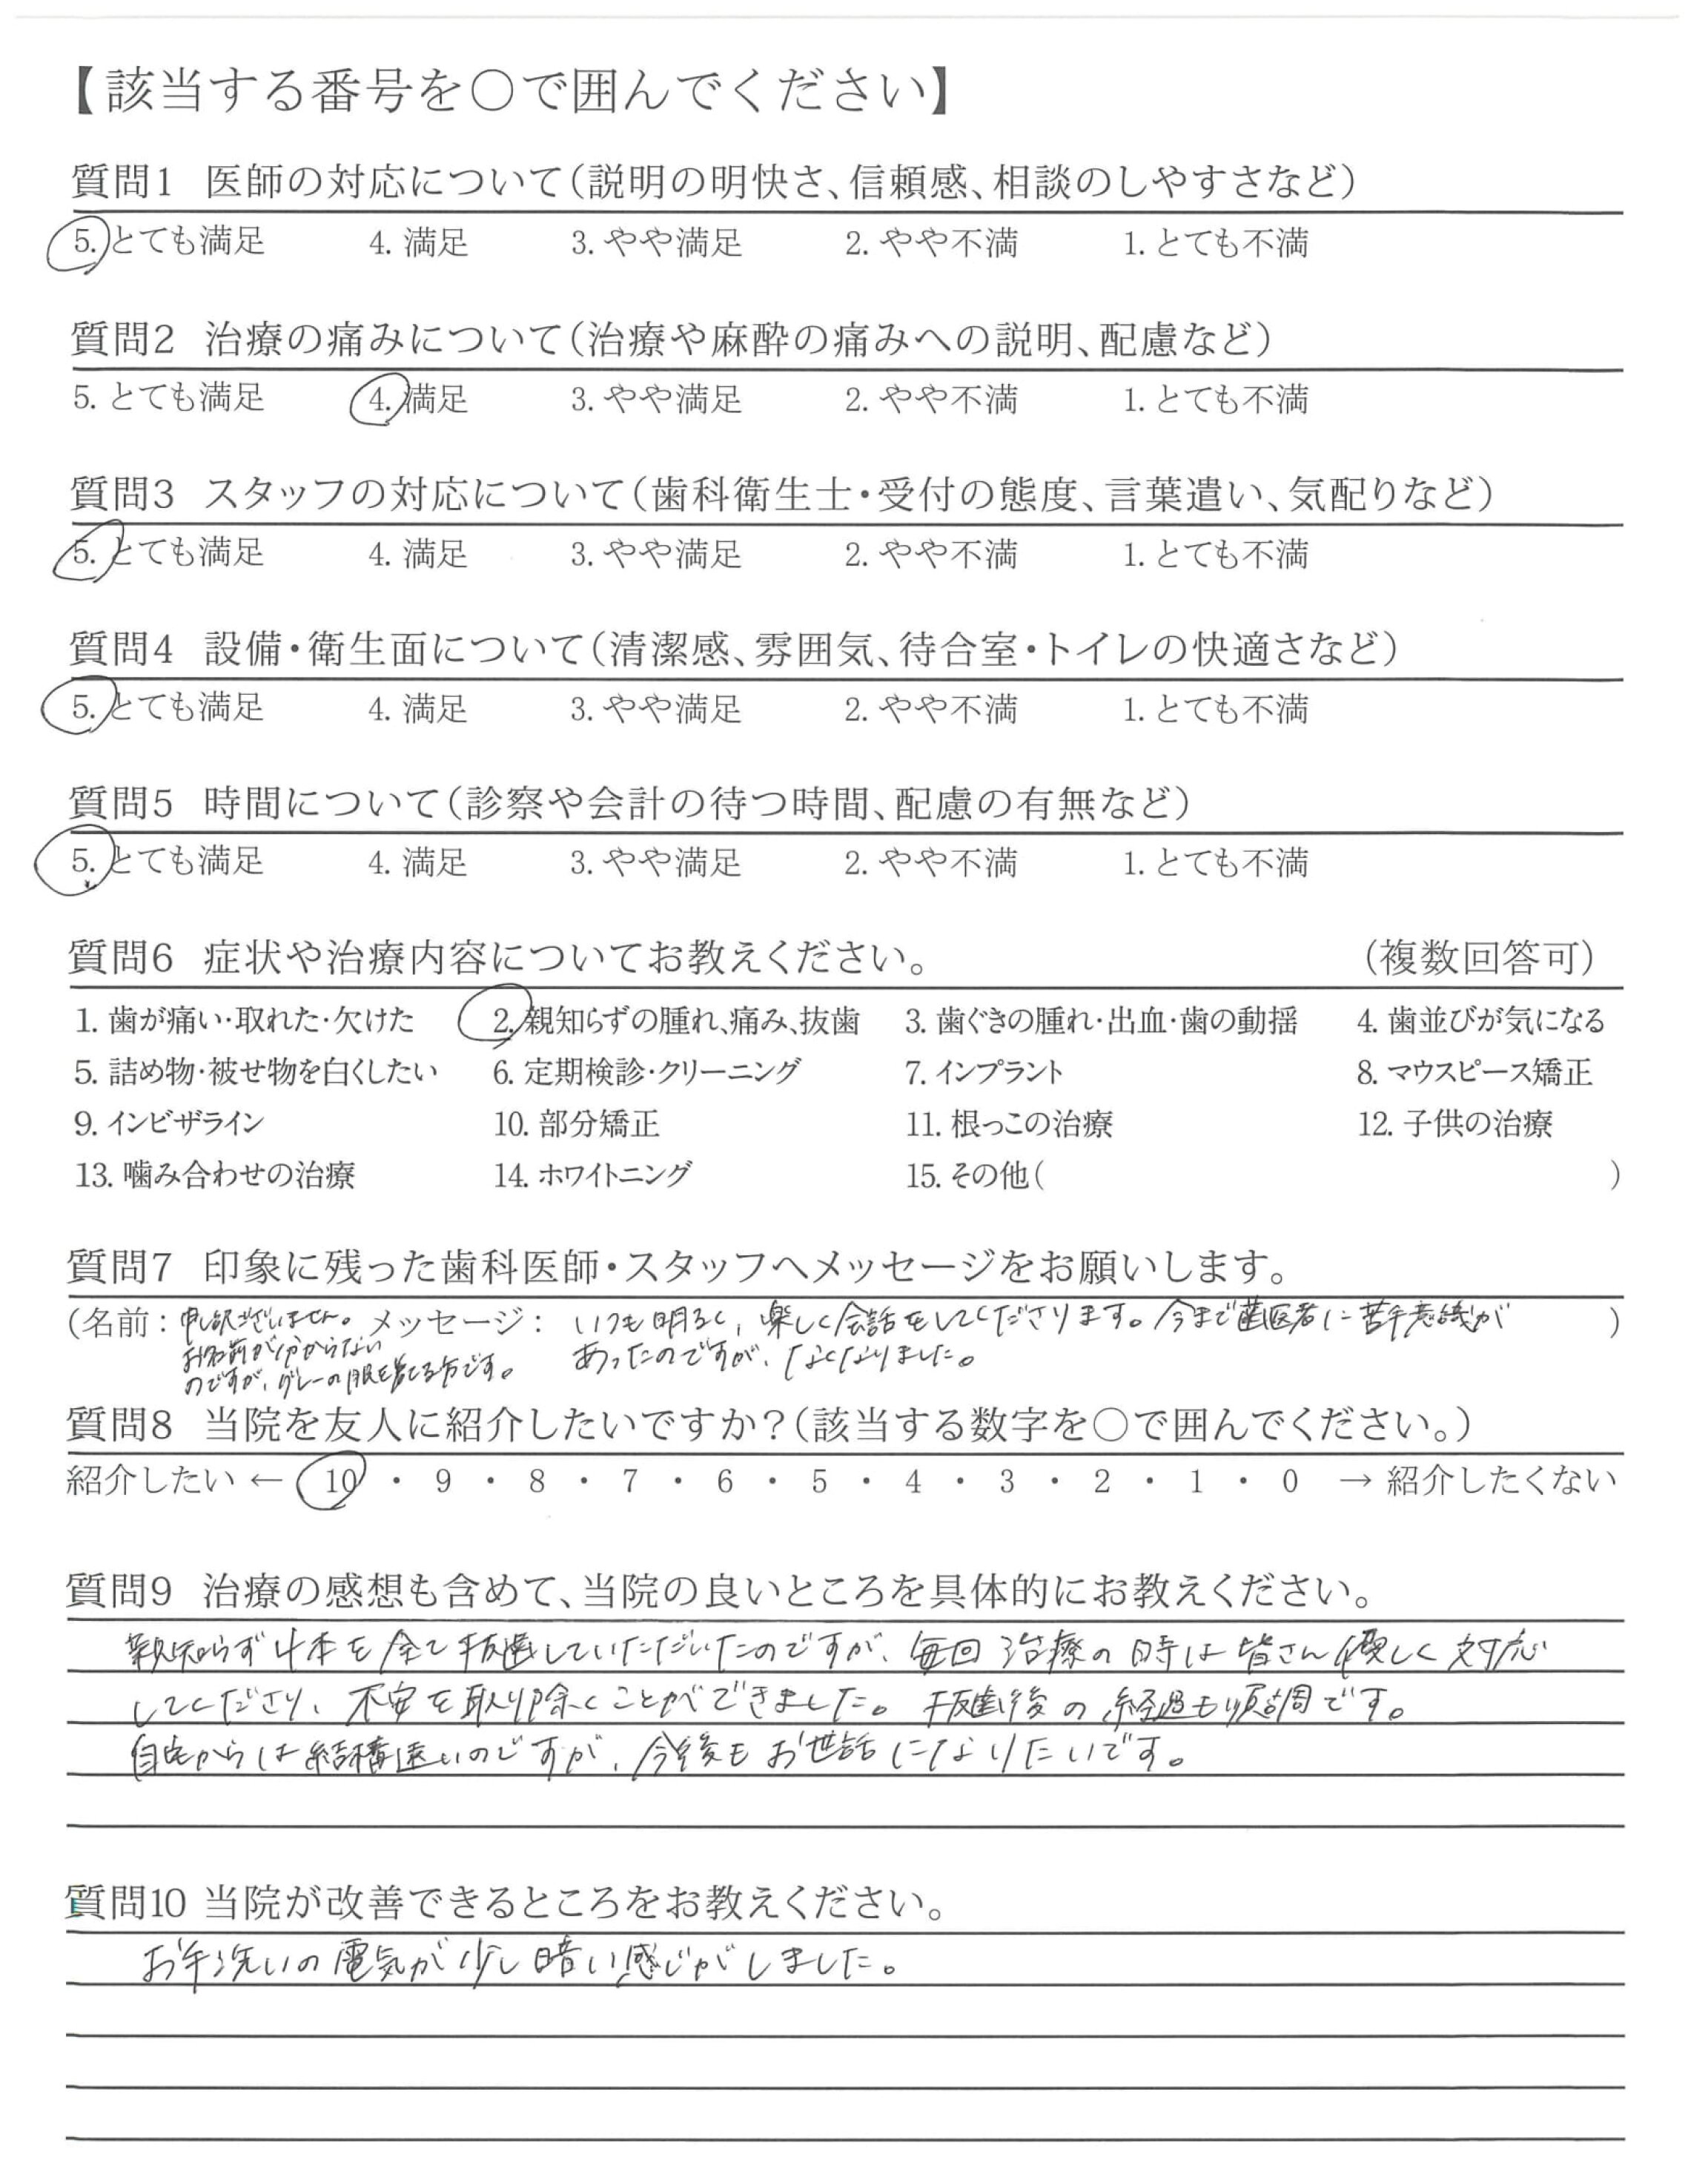 【該当する番号を○で囲んでください】
質問1 医師の対応について(説明の明快さ、信頼感、相談のしやすさなど)
5. とても満足 4. 満足 3. やや満足 2. やや不満 1. とても不満
質問2 治療の痛みについて(治療や麻酔の痛みへの説明、配慮など)
5. とても満足 4. 満足 3. やや満足 2. やや不満 1. とても不満
質問3 スタッフの対応について(歯科衛生士・受付の態度、言葉遣い、気配りなど)
5. とても満足 4. 満足 3. やや満足 2. やや不満 1. とても不満
質問4 設備・衛生面について(清潔感、雰囲気、待合室・トイレの快適さなど)
5. とても満足 4. 満足 3. やや満足 2. やや不満 1. とても不満
質問5 時間について(診察や会計の待つ時間、配慮の有無など)
5. とても満足 4. 満足 3. やや満足 2. やや不満 1. とても不満
質問6 症状や治療内容についてお教えください。 (複数回答可)
1. 歯が痛い・取れた・欠けた 2. 親知らずの腫れ、痛み、抜歯 3. 歯ぐきの腫れ・出血・歯の動揺 4. 歯並びが気になる
5. 詰め物・被せ物を白くしたい 6. 定期検診・クリーニング 7. インプラント 8. マウスピース矯正
9. インビザライン 10. 部分矯正 11. 根っこの治療 12. 子供の治療
13. 噛み合わせの治療 14. ホワイトニング 15. その他( )
質問7 印象に残った歯科医師・スタッフへメッセージをお願いします。
(名前: 申し訳ございません。 メッセージ: いつも明るく、楽しく会話をしてくださります。今まで歯医者に苦手意識が )
お名前が分からない あったのですが、なくなりました。
のですが、グレーの服を着てる方です。
質問8 当院を友人に紹介したいですか?(該当する数字を○で囲んでください。)
紹介したい ← 10 ・ 9 ・ 8 ・ 7 ・ 6 ・ 5 ・ 4 ・ 3 ・ 2 ・ 1 ・ 0 → 紹介したくない
質問9 治療の感想も含めて、当院の良いところを具体的にお教えください。
親知らず4本を全て抜歯していただいたのですが、毎回治療の時は皆さん優しく対応
してくださり、不安を取り除くことができました。抜歯後の経過も順調です。
自宅からは結構遠いのですが、今後もお世話になりたいです。
質問10 当院が改善できるところをお教えください。
お手洗いの電気が少し暗い感じがしました。